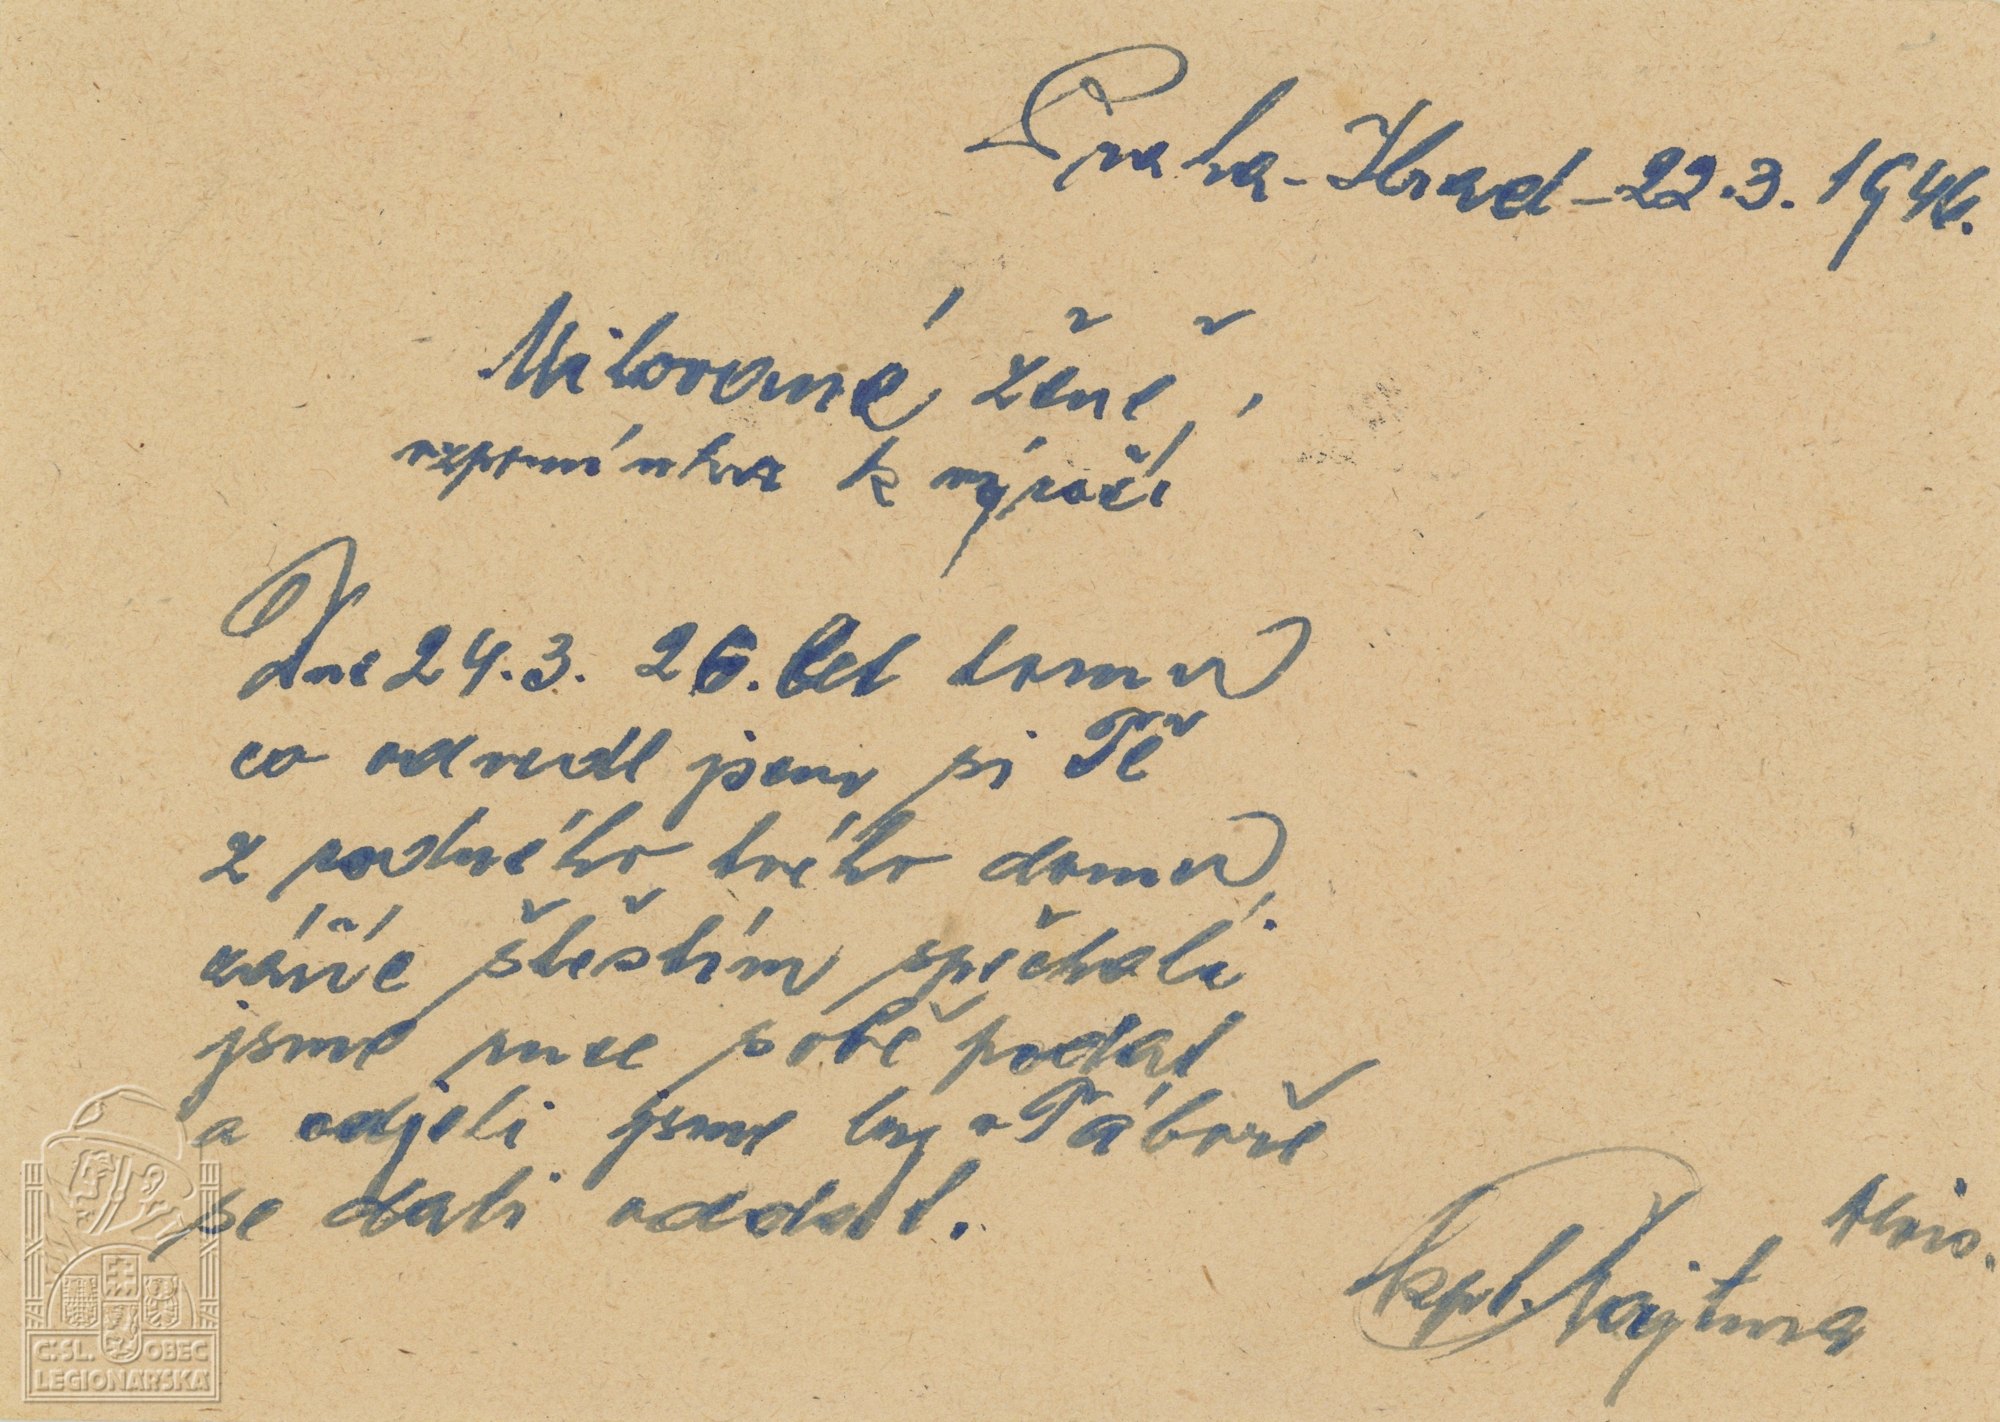 Praha-Hrad-22.3.1946.
Milované ženě,
vzpomínka k výročí
Dne 24.3. 26. let tomu
co odvedl jsem si Tě
z rodného tvého domu,
záříc štěstím spěchali
jsme ruce sobě podat
a odjeli jsme by v Táboře
se dali oddat.
Alois.
kpl.
Č:SL. OBEC
LEGIONÁŘSKÁ